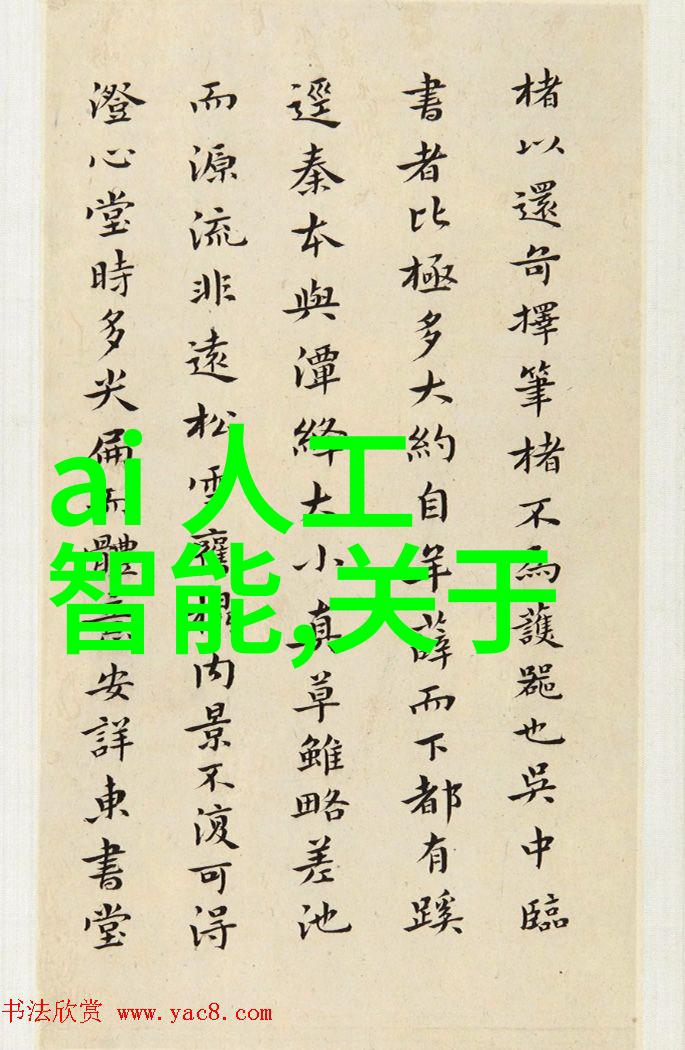 楮以還奇擇筆楮不為護器也吳中臨
書者比極多大約自羊薛而下都有蹊
逕秦本與潭絳大小真草雖略差池
而源流非遠松雪舊搨內景不復可得
澄心堂時多尖 體 安詳東書堂
ai 人工
智能,关于
书法欣赏 www.yac8.com